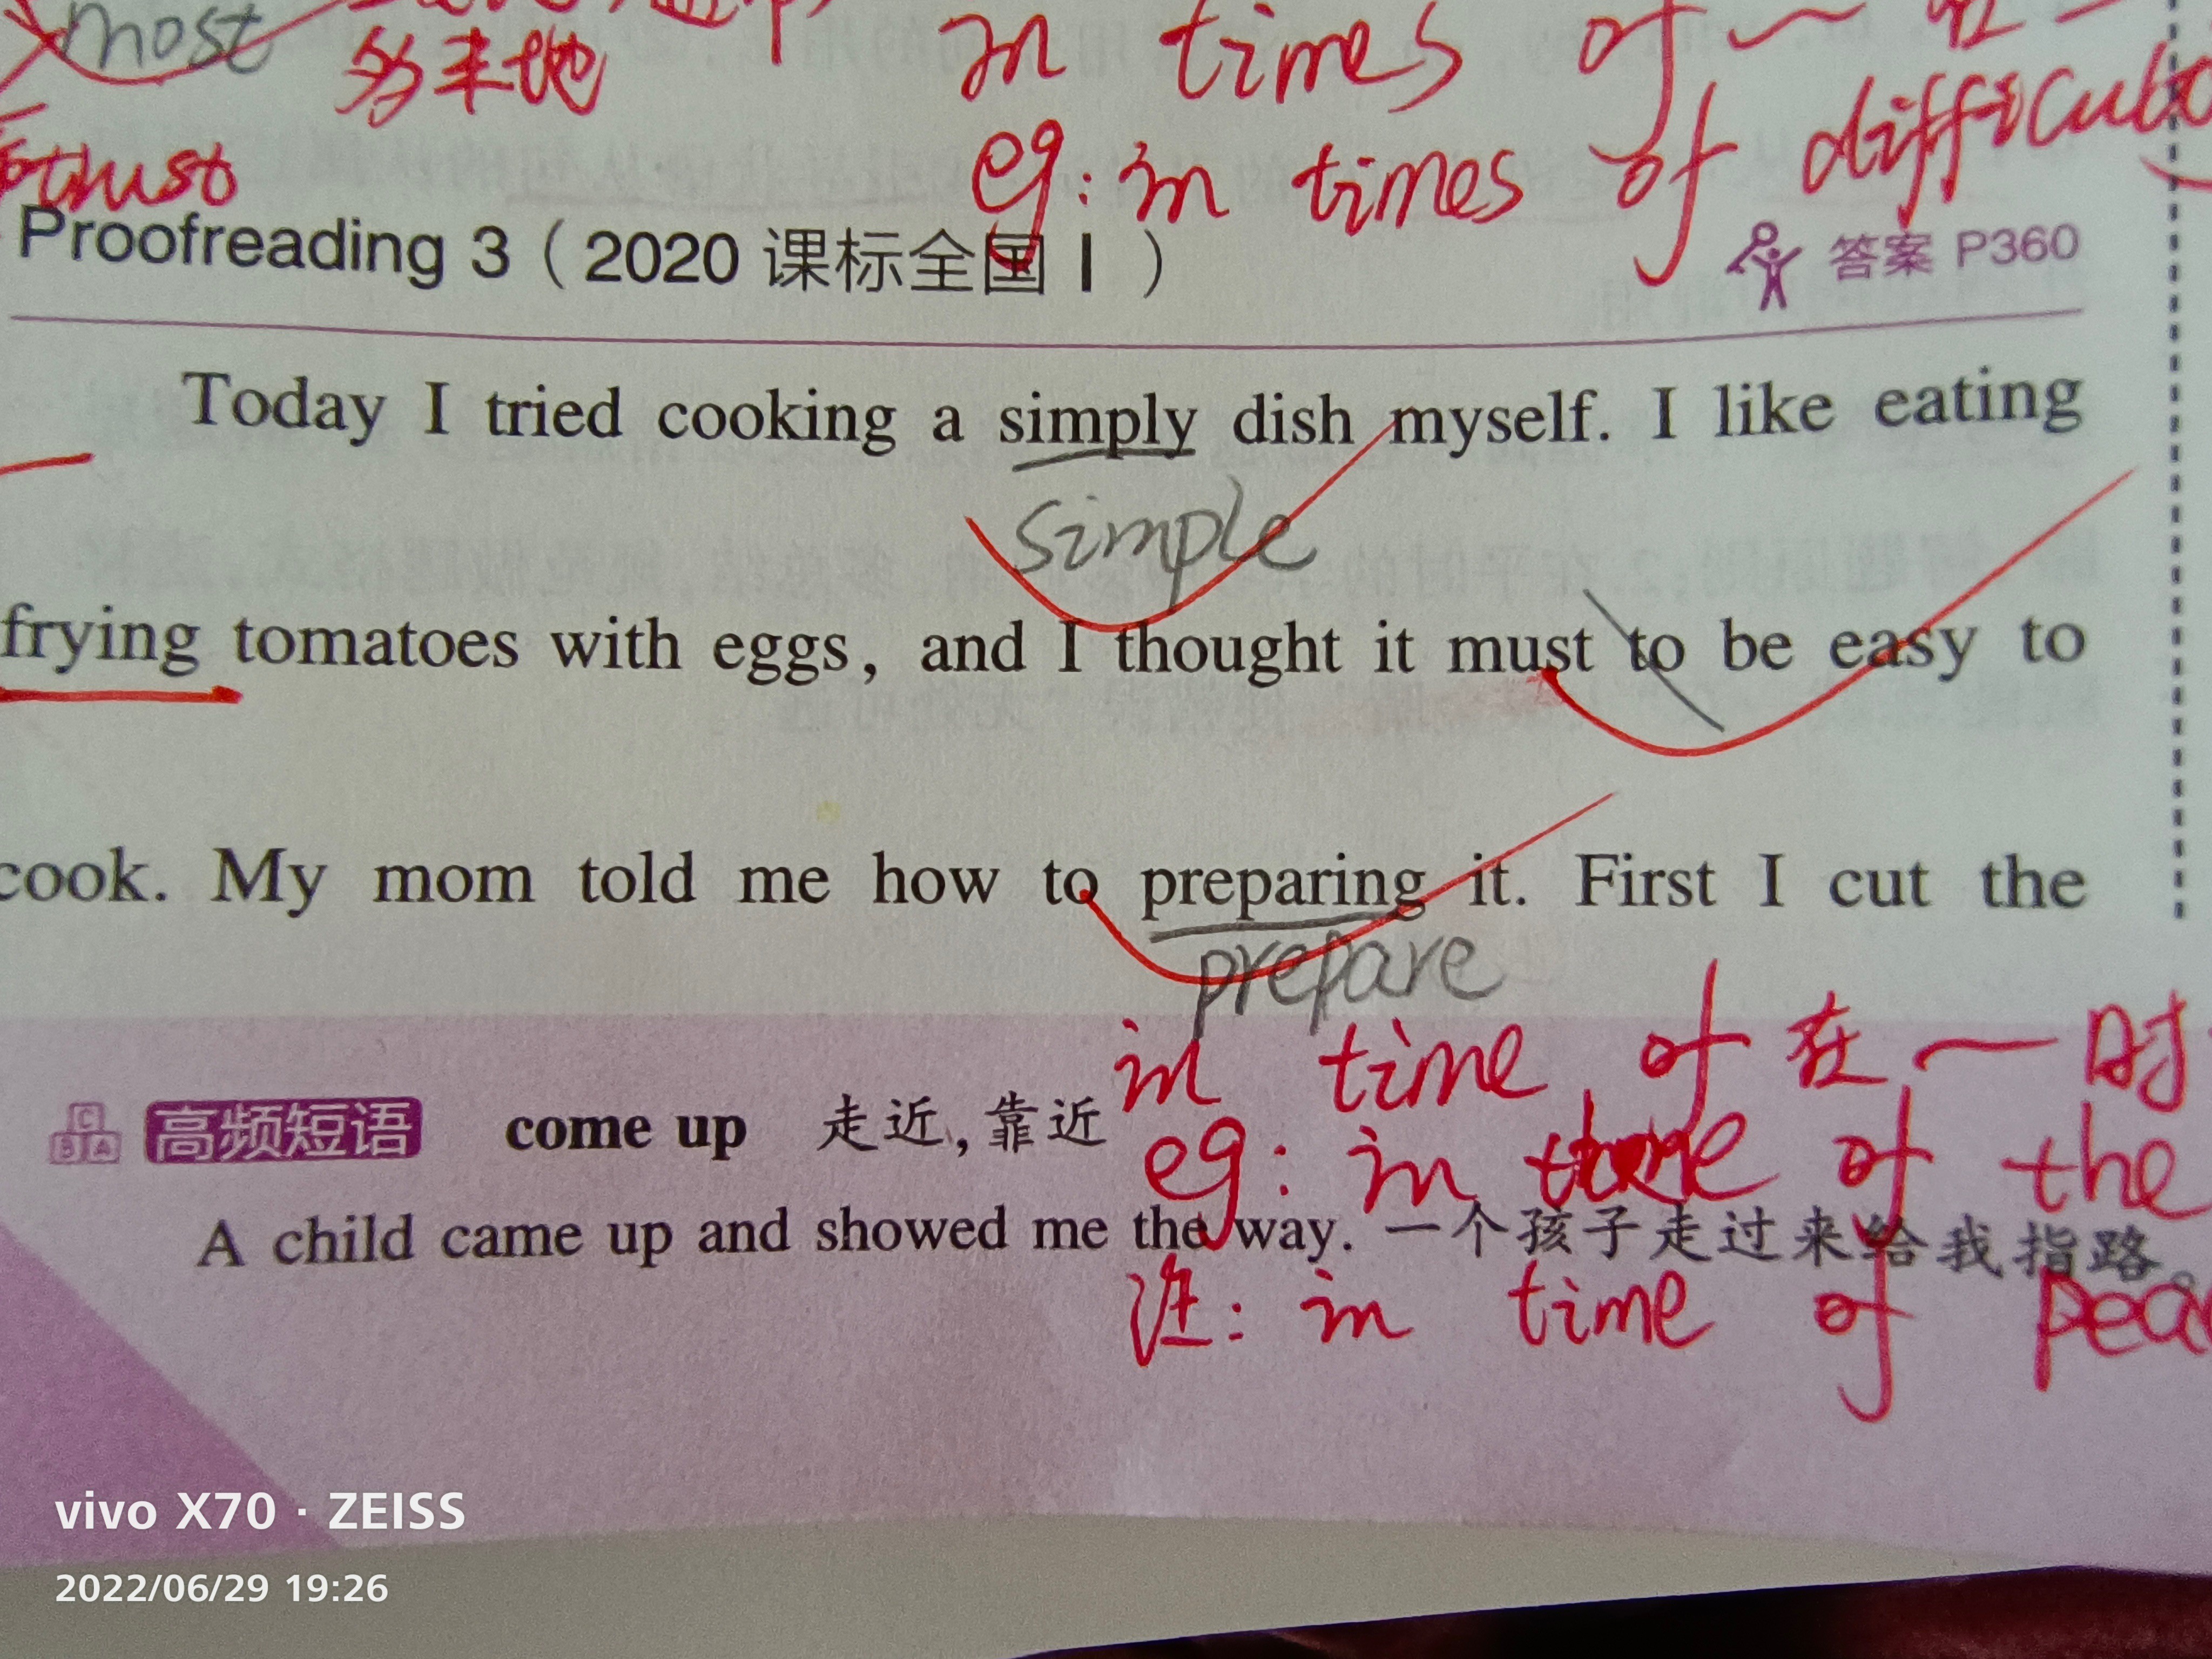 most
多来地
in times of
eg: in times of
thust
Proofreading 3（2020 课标全国 I ）
答案 P360
Today I tried cooking a simply dish myself. I like eating
simple
frying tomatoes with eggs, and I thought it must to be easy to
cook. My mom told me how to preparing it. First I cut the
prepare
in time of 在一时
高频短语 come up 走近,靠近
eg: in time of the
A child came up and showed me the way. 一个孩子走过来给我指路。
注: in time of
vivo X70 · ZEISS
2022/06/29 19:26